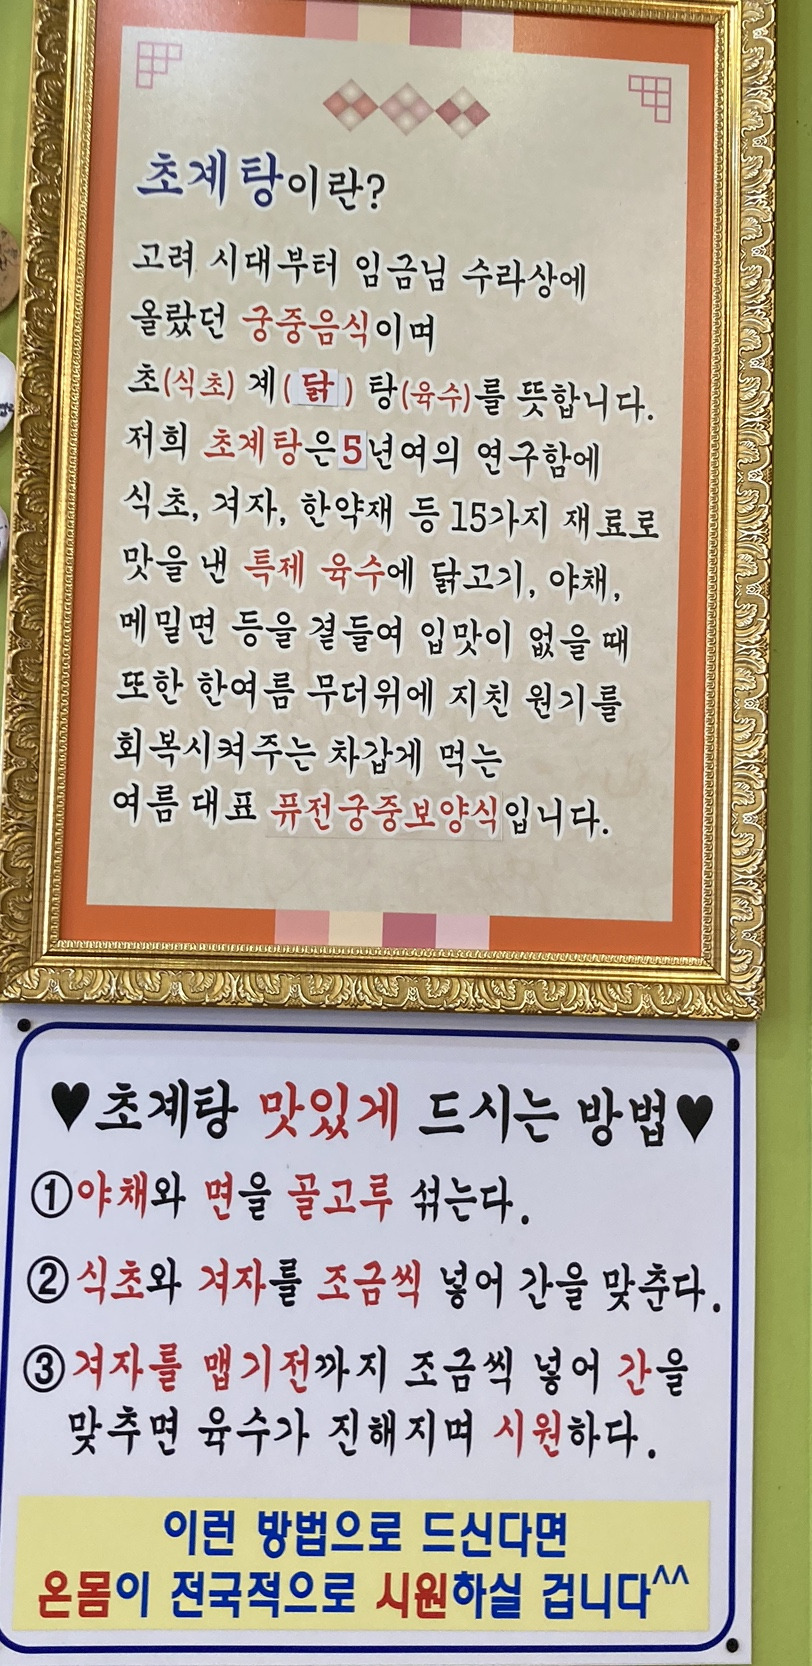 초계탕이란?
고려 시대부터 임금님 수라상에
올랐던 궁중음식이며
초(식초) 계(닭) 탕(육수)를 뜻합니다.
저희 초계탕은 5년여의 연구함에
식초, 겨자, 한약재 등 15가지 재료로
맛을 낸 특제 육수에 닭고기, 야채,
메밀면 등을 곁들여 입맛이 없을 때
또한 한여름 무더위에 지친 원기를
회복시켜주는 차갑게 먹는
여름 대표 퓨전궁중보양식입니다.
♥초계탕 맛있게 드시는 방법♥
①야채와 면을 골고루 섞는다.
②식초와 겨자를 조금씩 넣어 간을 맞춘다.
③겨자를 맵기전까지 조금씩 넣어 간을
맞추면 육수가 진해지며 시원하다.
이런 방법으로 드신다면
온몸이 전국적으로 시원하실 겁니다^^